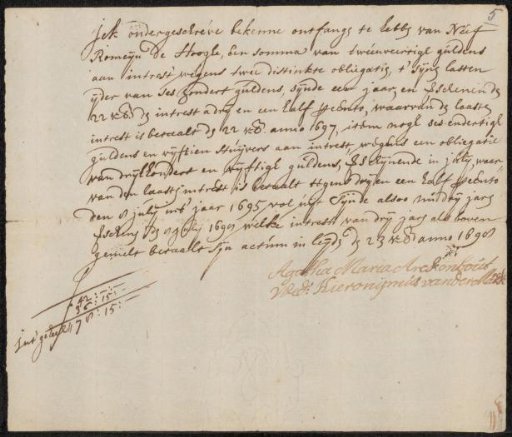 5
Jek ondergeschreve bekenne ontfangs te hebb van Neef
Romeyn De Hooghe, een somma van tweenveertigh guldens
aan intrest wegens twee distinkte obligatis, t' sijns lasten
ijder van ses hondert guldens, sijnde een jaar, en
22 xb intrest a drij en een half pr Cento, waarvan de laaste
intrest is betaalt ds 22 xb anno 1697, item nogh ses endertigh
guldens en vijftien stuijvers aan intrest, weguls een obligatie
van drijhondert en vijftigh guldens, in july, waar
van den laaste intrest is betaalt tegens drij en een half pr Cento
den 8 july int jaar 1695 vol uijt sijnde alsoo drij jaar
den 8 july 1698 welke intrest van drij jaar als boven
gemelt betaalt sijn actum in leyd ds 23 xb anno 1698
Agatha Maria Areckonhout
Wed. Hieronijmus vander
42:-:-
36:15:-
78:15: